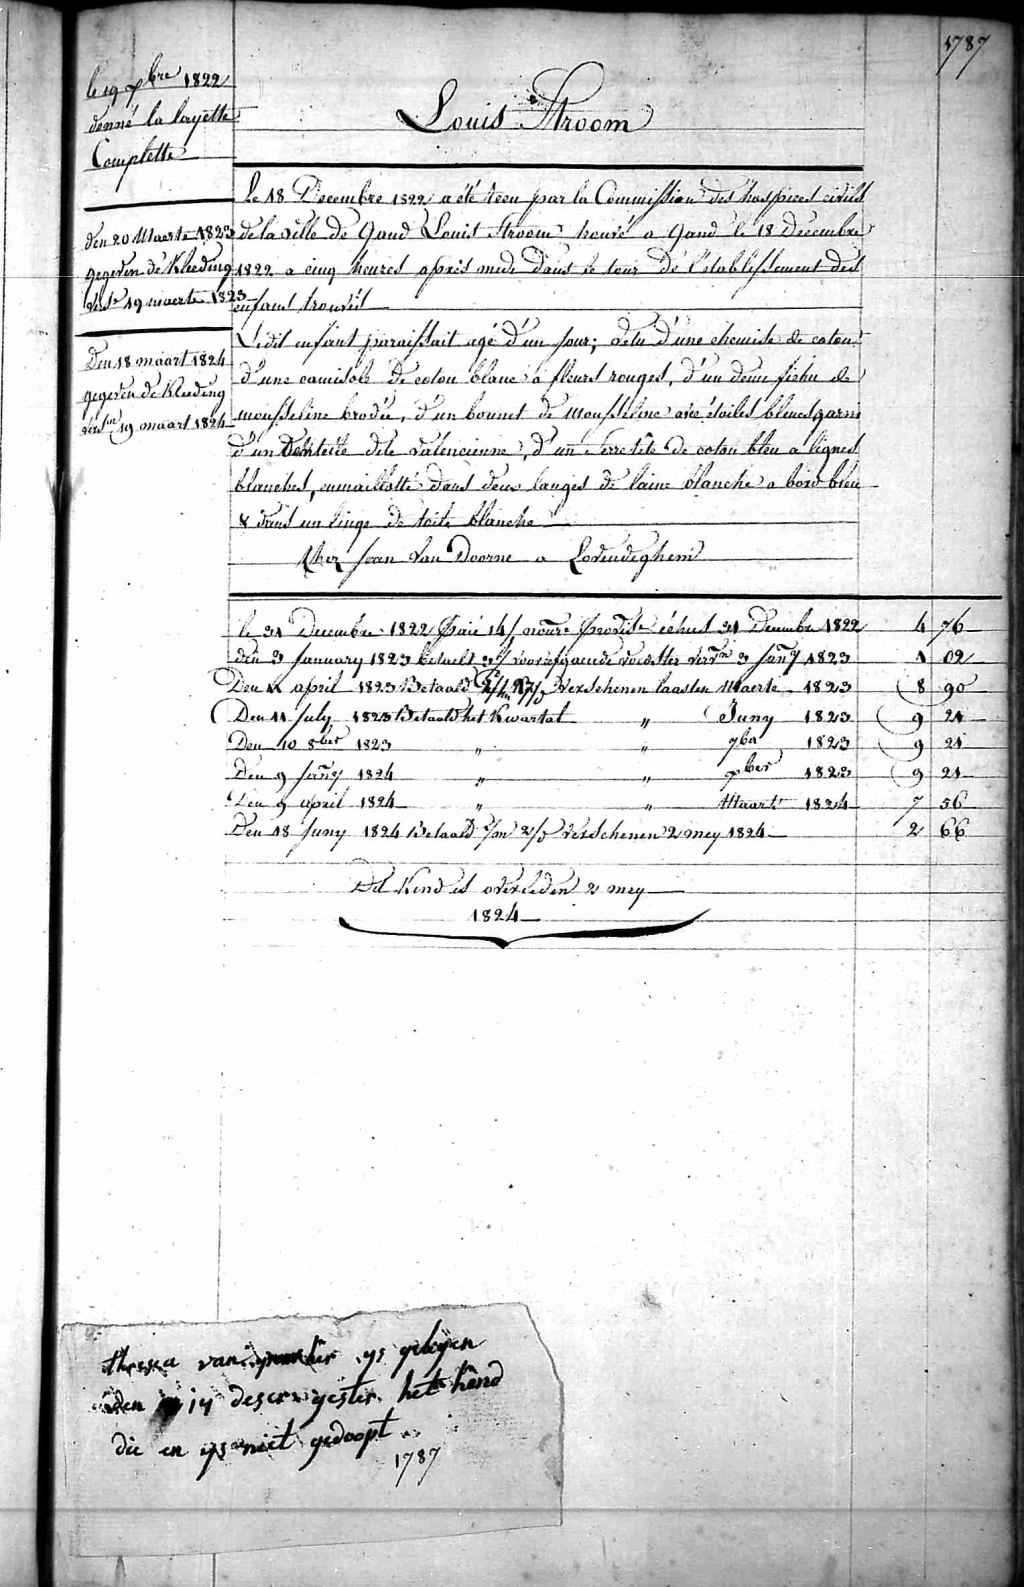 1787
le 19 Xbre 1822
donné la layette
Complette
den 20 Maerte 1823
gegeven de Kleeding
verst 19 maerte 1823
Den 18 maart 1824
gegeven de Kleeding
19 maart 1824
Louis Stroom
Le 18 Decembre 1822 a été recu par la Commission des hospices civils
de la ville de Gand Louis Stroom trouvé a Gand le 18 Decembre
1822 a cinq heures après midi dans le tour de l'etablissement des
enfans trouvés
Ledit enfant paraissait agé d'un jour; vetu d'une chemise de coton
d'une camisole de coton blanc à fleurs rouges, d'un demi fichu de
mousseline brodée, d'un bonnet de mousseline avec étoiles bleues garni
d'un dentelle dite valencienne, d'un serretête de coton bleu a lignes
blanches, enmaillotté dans deux langes de laine blanche a bord bleu
& dans un linge de toile blanche
Chez Jean Van Doorne a Lovendeghem
le 31 Decembre 1822 Paié 14/ échus 31 Decembre 1822 4 76
den 3 January 1823 betaelt 3 Jany 1823 1 02
Den 11 april 1823 Betaald Verschenen laasten Maerte 1823 8 90
Den 11 July 1823 Betaald het Kwartal " Juny 1823 9 21
Den 10 8ber 1823 " " 7ber 1823 9 21
Den 9 Jany 1824 " " Xber 1823 9 21
Den 9 april 1824 " " Maart 1824 7 56
Den 18 Juny 1824 Betaald verschenen 2 mey 1824 2 66
Dit Kind is overleden 2 mey
1824
van ys gelegen
den 17 deser gister het kind
die en ys niet gedoopt
1787